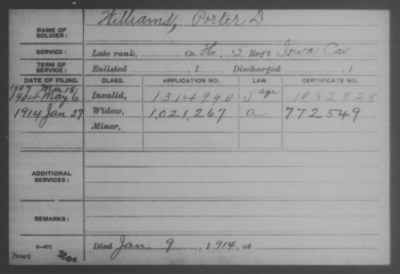 NAME OF SOLDIER: Williams, Porter D.
SERVICE: Late rank, Co. H, 2 Reg't Iowa Cav.
TERM OF SERVICE: Enlisted , 1 Discharged , 1
DATE OF FILING. CLASS. APPLICATION NO. LAW. CERTIFICATE NO.
1907 Mar 18
May 6 Invalid, age
1914 Jan 27 Widow, 1,021,267 a 772549
Minor,
ADDITIONAL SERVICES:
REMARKS:
Died Jan 9, 1914, at